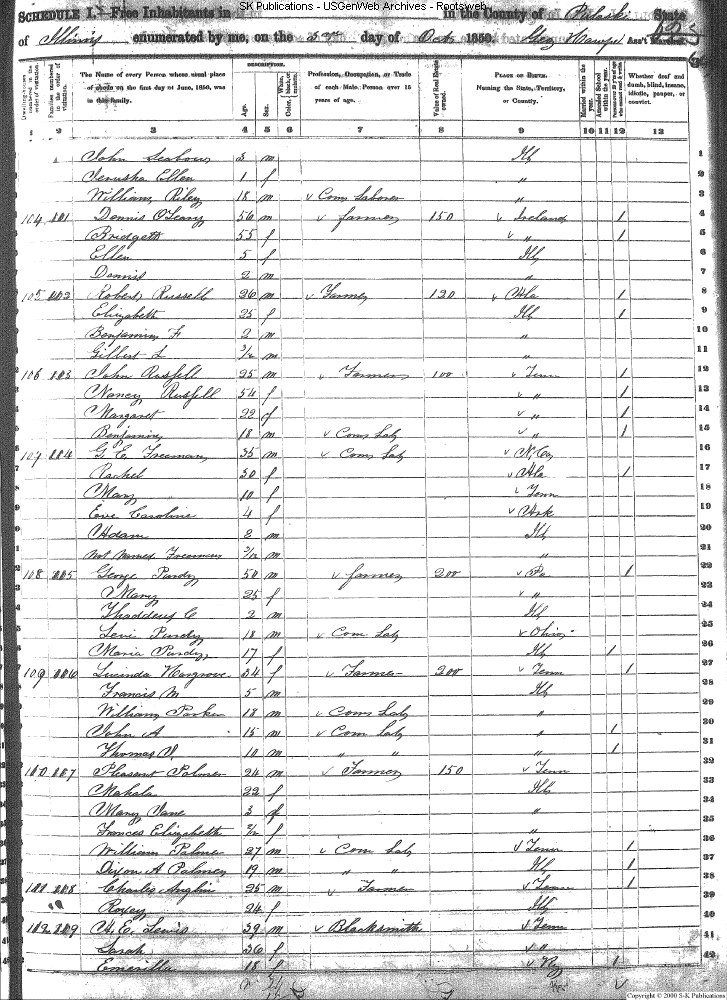 SK Publications - USGenWeb Archives - Rootsweb
SCHEDULE I. Free Inhabitants in in the County of Pulaski State
of Illinois enumerated by me, on the 3rd day of Oct 1850. Ass't Marshal.
Dwelling-houses numbered in the order of visitation. Families numbered in the order of visitation. The Name of every Person whose usual place of abode on the first day of June, 1850, was in this family. DESCRIPTION. Age. Sex. Color, White, black, or mulatto. Profession, Occupation, or Trade of each Male Person over 15 years of age. Value of Real Estate owned. PLACE OF BIRTH. Naming the State, Territory, or Country. Married within the year. Attended School within the year. Persons over 20 y'rs of age who cannot read & write. Whether deaf and dumb, blind, insane, idiotic, pauper, or convict.
1 2 3 4 5 6 7 8 9 10 11 12 13
John 3 m Ill 1
Ellen 1 f " 2
William Riley 18 m Com Laborer 3
104 101 Dennis O'Leary 56 m farmer 150 Ireland 1 4
Bridgett 55 f " 1 5
Ellen 5 f Ill 6
Dennis 2 m " 7
105 102 Robert Russell 26 m Farmer 120 Ala 1 8
Elizabeth 25 f Ill 1 9
Benjamin F 2 m " 10
Gilbert L /12 m " 11
106 103 John Russell 25 m Farmer 100 Tenn 1 12
Nancy Russell 54 f " 1 13
Margaret 22 f " 1 14
Benjamin 18 m Com Lab " 1 15
107 104 G. C. Freeman 35 m Com Lab N. Ca 16
Rachel 30 f Ala 1 17
Mary 10 f Tenn 18
Eve Caroline 4 f Ark 19
Adam 2 m Ill 20
Not Named Freeman 3/12 m " 21
108 105 George Purdy 50 m farmer 200 Pa 1 22
Mary 25 f " 23
Thaddeus C 2 m Ill 24
Levi Purdy 18 m Com Lab Ohio 25
Maria Purdy 17 f Ill 1 26
109 106 Lucinda Hargrove 34 f Farmer 200 Tenn 1 27
Francis M 5 m Ill 28
William Parker 18 m Com Lab " 29
John A 15 m Com Lab " 1 30
Thomas J. 10 m " " " 1 31
110 107 Pleasant Palmer 24 m Farmer 150 Tenn 32
Mahala 22 f Ill 33
Mary Jane 3 f " 34
Frances Elizabeth /12 f " 35
William Palmer 27 m Com Lab Tenn 1 36
Dixon A Palmer 19 m " " Ill 1 37
111 108 Charles Anglin 25 m Farmer Tenn 1 38
Roxey 24 f Ill 39
112 109 A. E. Lewis 39 m Blacksmith Tenn 40
Sarah 36 f " 41
Emerilla 18 f Ky 1 42
Copyright © 2000 S-K Publications